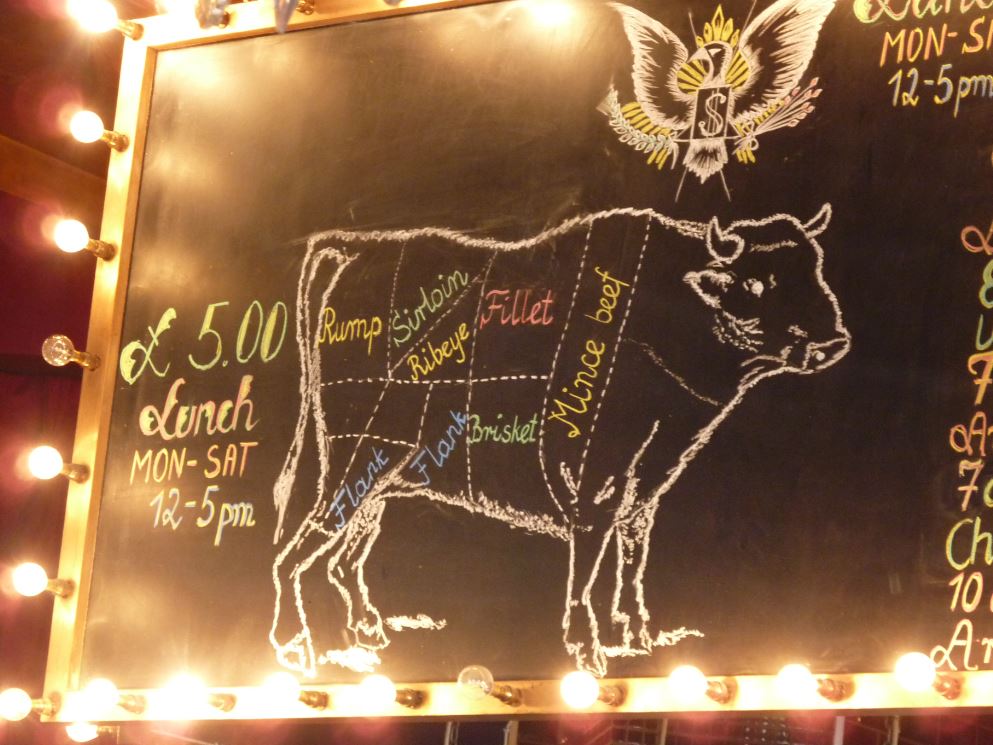 £ 5.00
Lunch
MON-SAT
12-5pm
Rump
Sirloin
Ribeye
Fillet
Mince beef
Flank
Flank
Brisket
$
Lunch
12-5pm
10